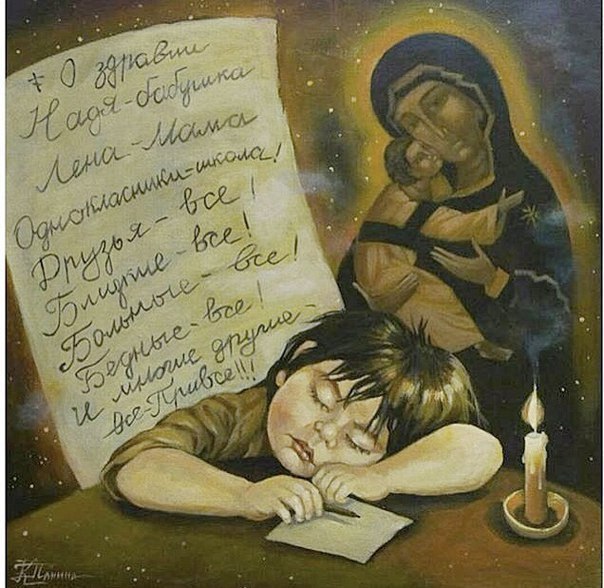 + О здравии
Надя-бабушка
Лена-Мама
Однокласники-школа!
Друзья-все!
Близкие-все!
Больные-все!
Бедные-все!
и многие другие-
все-Привсе!!!
КПанина